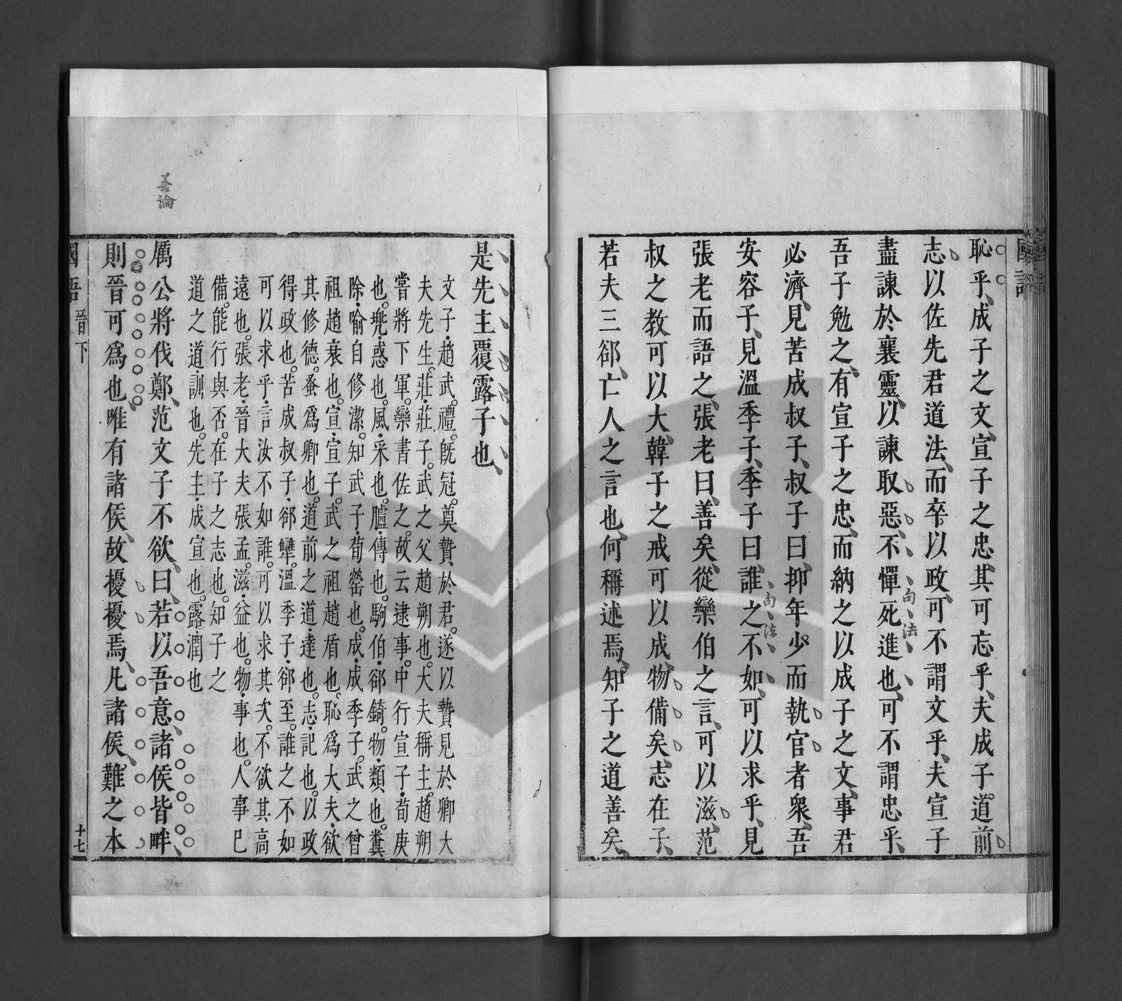 國語
恥乎、成子之文、宣子之忠、其可忘乎、夫成子。道前
志、以佐先君道法、而卒以政、可不謂文乎、夫宣子
盡諫於襄靈、以諫取惡、不憚死進也、可不謂忠乎、
吾子勉之、有宣子之忠、而納之以成子之文、事君
必濟、見苦成叔子、叔子曰、抑年少而執官者衆、吾
安容子、見溫季子、季子曰、誰之不如、可以求乎、見
張老而語之、張老曰、善矣、從欒伯之言、可以滋、范
叔之教可以大、韓子之戒可以成、物備矣、志在子、
若夫三郤、亡人之言也、何稱述焉、知子之道善矣、
句法
句法
是先主覆露子也、
文子、趙武。禮。旣冠。奠贄於君。遂以贄見於卿大
夫先生。莊、莊子。武之父趙朔也。大夫稱主。趙朔
嘗將下軍。欒書佐之。故云逮事。中行宣子、荀庚
也。兠、惑也。風、采也。臚、傳也。駒伯、郤錡。物、類也。糞
除、喻自修潔。知武子、荀罃也。成、成季子。武之曾
祖趙衰也。宣、宣子。武之祖趙盾也。恥爲大夫、欲
其修德。蚤爲卿也。道前之道、達也。志、記也。以政
得政也。苦成叔子、郤犫。溫季子、郤至。誰之不如
可以求乎、言汝不如誰。可以求其次。不欲其高
遠也。張老、晉大夫張孟。滋、益也。物、事也。人事已
備。能行與否。在子之志也。知子之
道之道、訓也。先主、成宣也。露、潤也
厲公將伐鄭、范文子不欲、曰、若以吾意、諸侯皆畔、
則晉可爲也、唯有諸侯、故擾擾焉、凡諸侯、難之本
善論
國語
晉下
十七